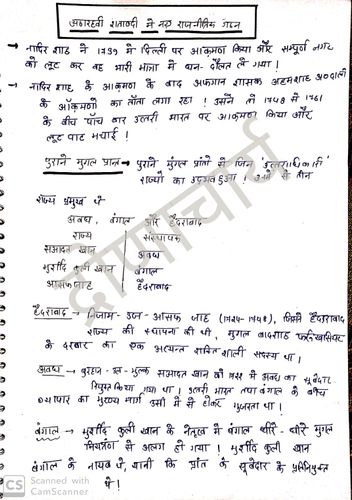 अठारहवीं शताब्दी में नए राजनीतिक गठन
→ नादिर शाह ने 1739 में दिल्ली पर आक्रमण किया और सम्पूर्ण नगर
को लूट कर वह भारी मात्रा में धन-दौलत ले गया!
→ नादिर शाह के आक्रमण के बाद अफगान शासक अहमदशाह अब्दाली
के आक्रमणों का ताँता लगा रहा! उसने तो 1748 से 1761
के बीच पाँच बार उत्तरी भारत पर आक्रमण किया और
लूट पाट मचाई!
पुराने मुगल प्रान्त → पुराने मुगल प्रांतों से जिन 'उत्तराधिकारी'
राज्यों का उद्भव हुआ! उनमें से तीन
राज्य प्रमुख थे
अवध, बंगाल और हैदराबाद
राज्य संस्थापक
सआदत खान अवध
मुर्शीद कुली खान बंगाल
आसफ जाह हैदराबाद
हैदराबाद → निजाम-उल-आसफ जाह (1724-1748), जिसने हैदराबाद
राज्य की स्थापना की थी, मुगल बादशाह फर्रुखसियर
के दरबार का एक अत्यन्त शक्तिशाली सदस्य था!
अवध → बुरहान-उल-मुल्क सआदत खान को 1722 में अवध का सूबेदार
नियुक्त किया गया था! उत्तरी भारत तथा बंगाल के बीच
व्यापार का मुख्य मार्ग उसी में से होकर गुजरता था!
बंगाल → मुर्शीद कुली खान के नेतृत्व में बंगाल धीरे-धीरे मुगल
नियंत्रण से अलग हो गया! मुर्शीद कुली खान
बंगाल के नायब थे, यानी कि प्रांत के सूबेदार के प्रतिनियुक्त
थे!
द्रोणाचार्य
CS Scanned with
CamScanner